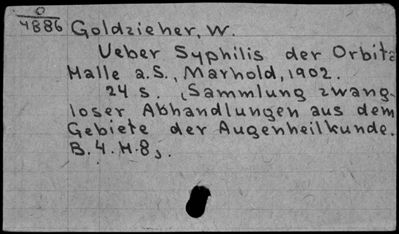 O
4886 Goldzieher, W.
Ueber Syphilis der Orbita
Halle a.S., Marhold, 1902.
24 s. (Sammlung zwang-
loser Abhandlungen aus dem
Gebiete der Augenheilkunde.
B.4.H.8).